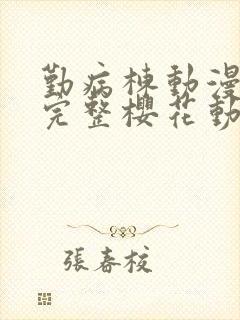 勤病棟動漫
完整櫻花動
張春校